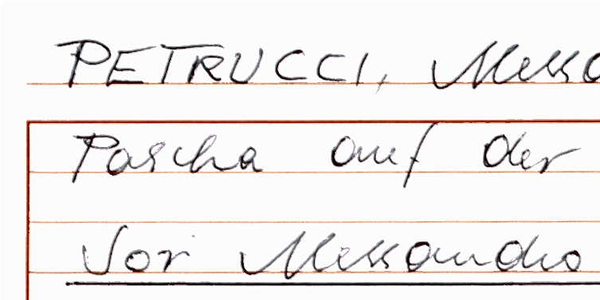 PETRUCCI, Alessa
Pascha auf der
Vor Alessandro